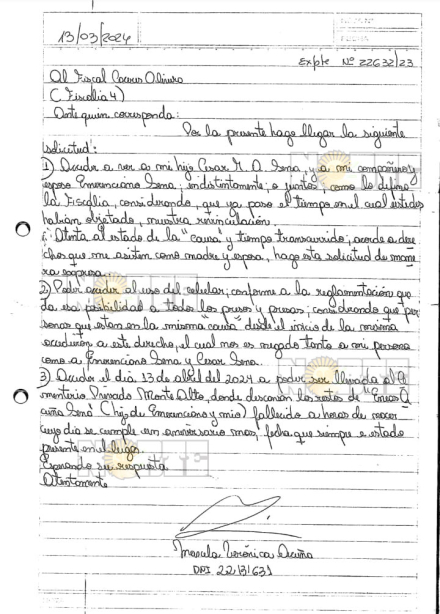 13/03/2024
Expte Nº 22632/23
Al Fiscal Caceres Olivera
(Fiscalia 4)
Ante quien corresponda:
Por la presente hago llegar la siguiente
solicitud:
1) Acceder a ver a mi hijo Cesar M. A. Sena, y a mi compañero y
esposo Emerenciano Sena, indistintamente, o juntos, como lo defina
la Fiscalia, considerando, que ya paso el tiempo en el cual ustedes
habian objetado, nuestra revinculación.
Atenta, al estado de la "causa" y tiempo transcurrido, acorde a dere
chos que me asisten como madre y esposa, hago esta solicitud de mane
ra expresa.
2) Poder acceder al uso del celular; conforme a la reglamentación que
da esa posibilidad a todos los presos y presas; considerando que per
sonas que estan en la misma "causa" desde el inicio de la misma
accedieron a este derecho, el cual nos es negado tanto a mi persona
como a Emerenciano Sena y Cesar Sena.
3) Acceder el dia 13 de abril del 2024 a poder ser llevada al Ce
menterio Privado Monte Alto, donde descansan los restos de "Eneas A
cuña Sena" (hijo de Emerenciano y mio) fallecido a horas de nacer
cuyo dia se cumple un aniversario mas, fecha que siempre e estado
presente en el lugar.
Esperando su respuesta
Atentamente
Marcela Verónica Acuña
DNI 22.131.631